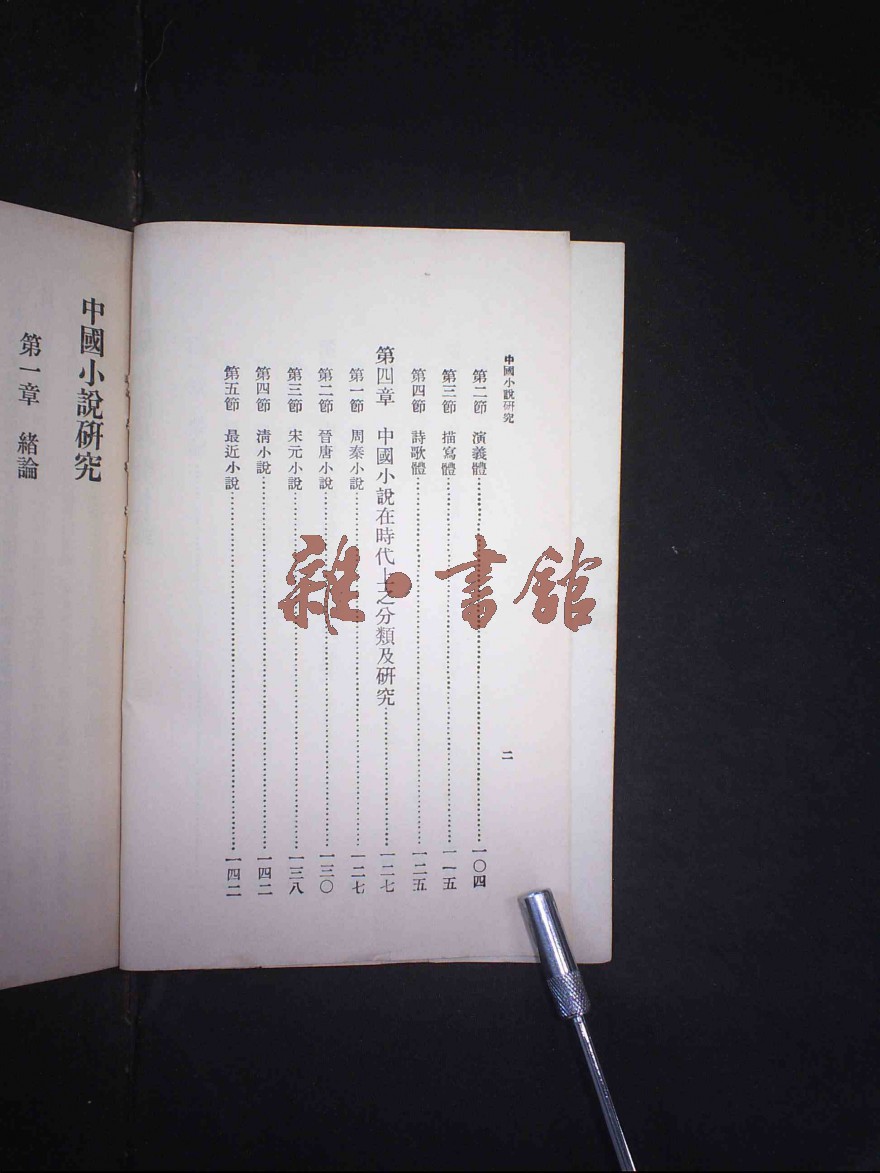 中國小說研究
二
第二節 演義體……一〇四
第三節 描寫體……一一五
第四節 詩歌體……一二五
第四章 中國小說在時代上之分類及研究……一二七
第一節 周秦小說……一二七
第二節 晉唐小說……一三〇
第三節 宋元小說……一三八
第四節 清小說……一四二
第五節 最近小說……一四二
中國小說研究
第一章 緒論
雜·書館